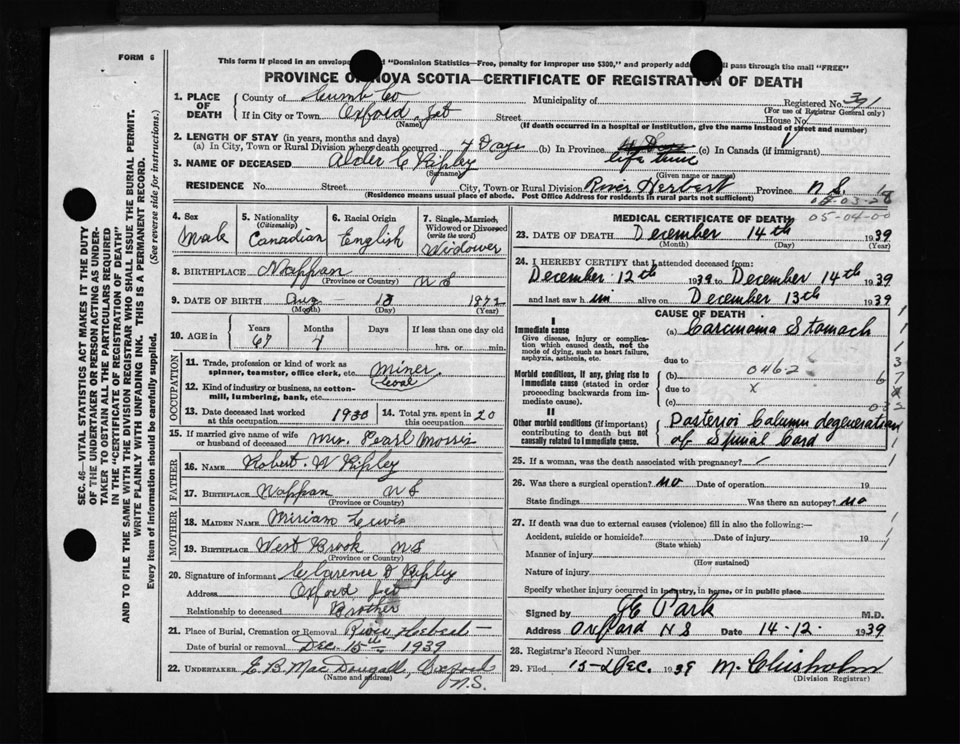 FORM 6
This form if placed in an envelope "Dominion Statistics—Free, penalty for improper use $300," and properly pass through the mail "FREE"
PROVINCE OF NOVA SCOTIA—CERTIFICATE OF REGISTRATION OF DEATH
1. PLACE OF DEATH
County of Cumb Co Municipality of Registered No. 391
(For use of Registrar General only)
If in City or Town Oxford Jct Street House No.
(Name) (If death occurred in a hospital or institution, give the name instead of street and number)
2. LENGTH OF STAY (in years, months and days)
(a) In City, Town or Rural Division where death occurred 4 Days (b) In Province life time (c) In Canada (if immigrant)
3. NAME OF DECEASED Alder C Ripley
(Surname) (Given name or names)
RESIDENCE No. Street City, Town or Rural Division River Herbert Province N S.
(Residence means usual place of abode. Post Office Address for residents in rural parts not sufficient)
05-04-00
4. Sex Male
5. Nationality (Citizenship) Canadian
6. Racial Origin English
7. Single, Married, Widowed or Divorced (write the word) Widower
8. BIRTHPLACE Nappan N S
(Province or Country)
9. DATE OF BIRTH Aug 18 1872
(Month) (Day) (Year)
10. AGE in Years Months Days If less than one day old
67 4 hrs. or min.
OCCUPATION
11. Trade, profession or kind of work as spinner, teamster, office clerk, etc. Miner
12. Kind of industry or business, as cotton-mill, lumbering, bank, etc. Coal
13. Date deceased last worked at this occupation 1930 14. Total yrs. spent in 20
15. If married give name of wife or husband of deceased Mrs. Pearl Morris
FATHER
16. NAME Robert W Ripley
17. BIRTHPLACE Nappan N S
MOTHER
18. MAIDEN NAME Miriam Lewis
19. BIRTHPLACE West Brook N S
(Province or Country)
20. Signature of informant Clarence D Ripley
Address Oxford Jct
Relationship to deceased Brother
21. Place of Burial, Cremation or Removal River Herbert
Date of burial or removal Dec. 15th 1939
22. UNDERTAKER E. B. MacDougall, Oxford N.S.
(Name and address)
MEDICAL CERTIFICATE OF DEATH
23. DATE OF DEATH December 14th 1939
(Month) (Day) (Year)
24. I HEREBY CERTIFY that I attended deceased from:
December 12th 1939 to December 14th 1939
and last saw him alive on December 13th 1939
CAUSE OF DEATH
I
Immediate cause (a) Carcinoma Stomach
Give disease, injury or complication which caused death, not the mode of dying, such as heart failure, asphyxia, asthenia, etc. due to
Morbid conditions, if any, giving rise to immediate cause (stated in order proceeding backwards from immediate cause). (b) 046-2
due to x
(c)
II
Other morbid conditions (if important) contributing to death but not causally related to immediate cause. Posterior Column degeneration of Spinal Cord
25. If a woman, was the death associated with pregnancy?
26. Was there a surgical operation? no Date of operation 19
State findings Was there an autopsy? no
27. If death was due to external causes (violence) fill in also the following:—
Accident, suicide or homicide? Date of injury 19
(State which)
Manner of injury
(How sustained)
Nature of injury
Specify whether injury occurred in industry, in home, or in public place
Signed by J E Park M.D.
Address Oxford N S Date 14-12. 1939
28. Registrar's Record Number
29. Filed 15-Dec. 1939 M. Chisholm
(Division Registrar)
SEC. 46—VITAL STATISTICS ACT MAKES IT THE DUTY OF THE UNDERTAKER OR PERSON ACTING AS UNDERTAKER TO OBTAIN ALL THE PARTICULARS REQUIRED IN THE "CERTIFICATE OF REGISTRATION OF DEATH"
AND TO FILE THE SAME WITH THE DIVISION REGISTRAR WHO SHALL ISSUE THE BURIAL PERMIT.
WRITE PLAINLY WITH UNFADING INK. THIS IS A PERMANENT RECORD.
Every item of information should be carefully supplied. (See reverse side for instructions.)